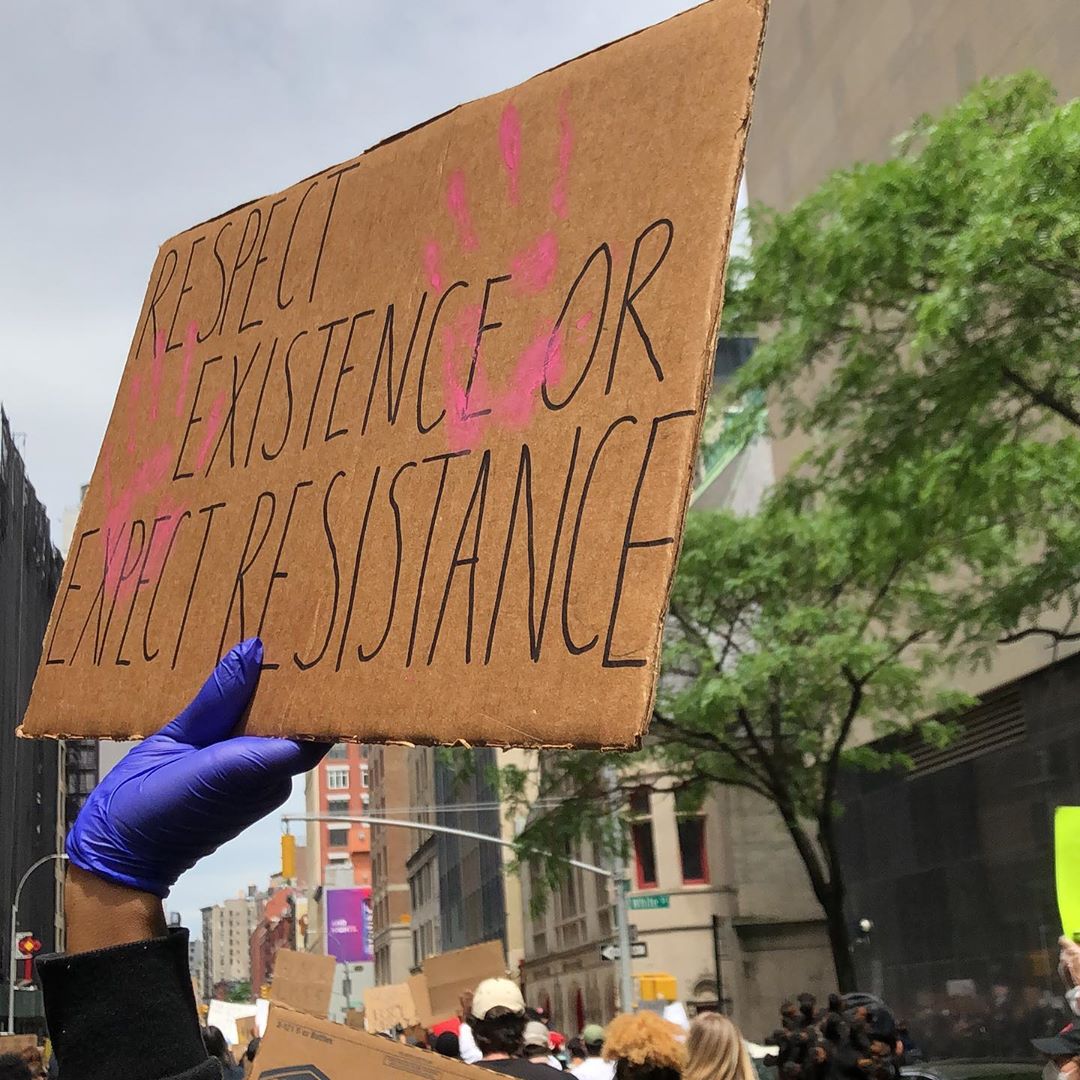 RESPECT
EXISTENCE OR
EXPECT RESISTANCE
White St